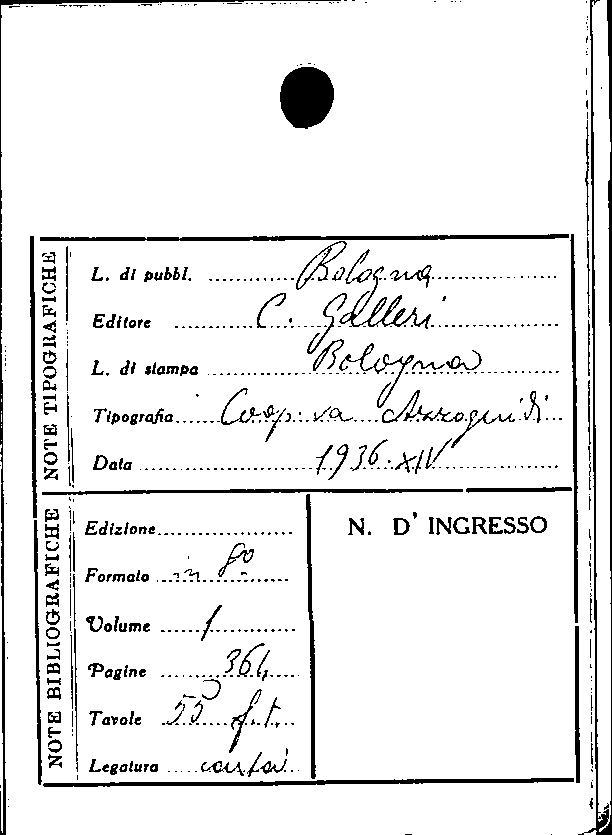 NOTE TIPOGRAFICHE
L. di pubbl. Bologna
Editore C. Galleri
L. di stampa Bologna
Tipografia Coop.va Azzoguidi
Data 1936. XIV
NOTE BIBLIOGRAFICHE
Edizione
Formato in 8º
Volume 1
Pagine 364
Tavole 55 f.t.
Legatura carta
N. D' INGRESSO